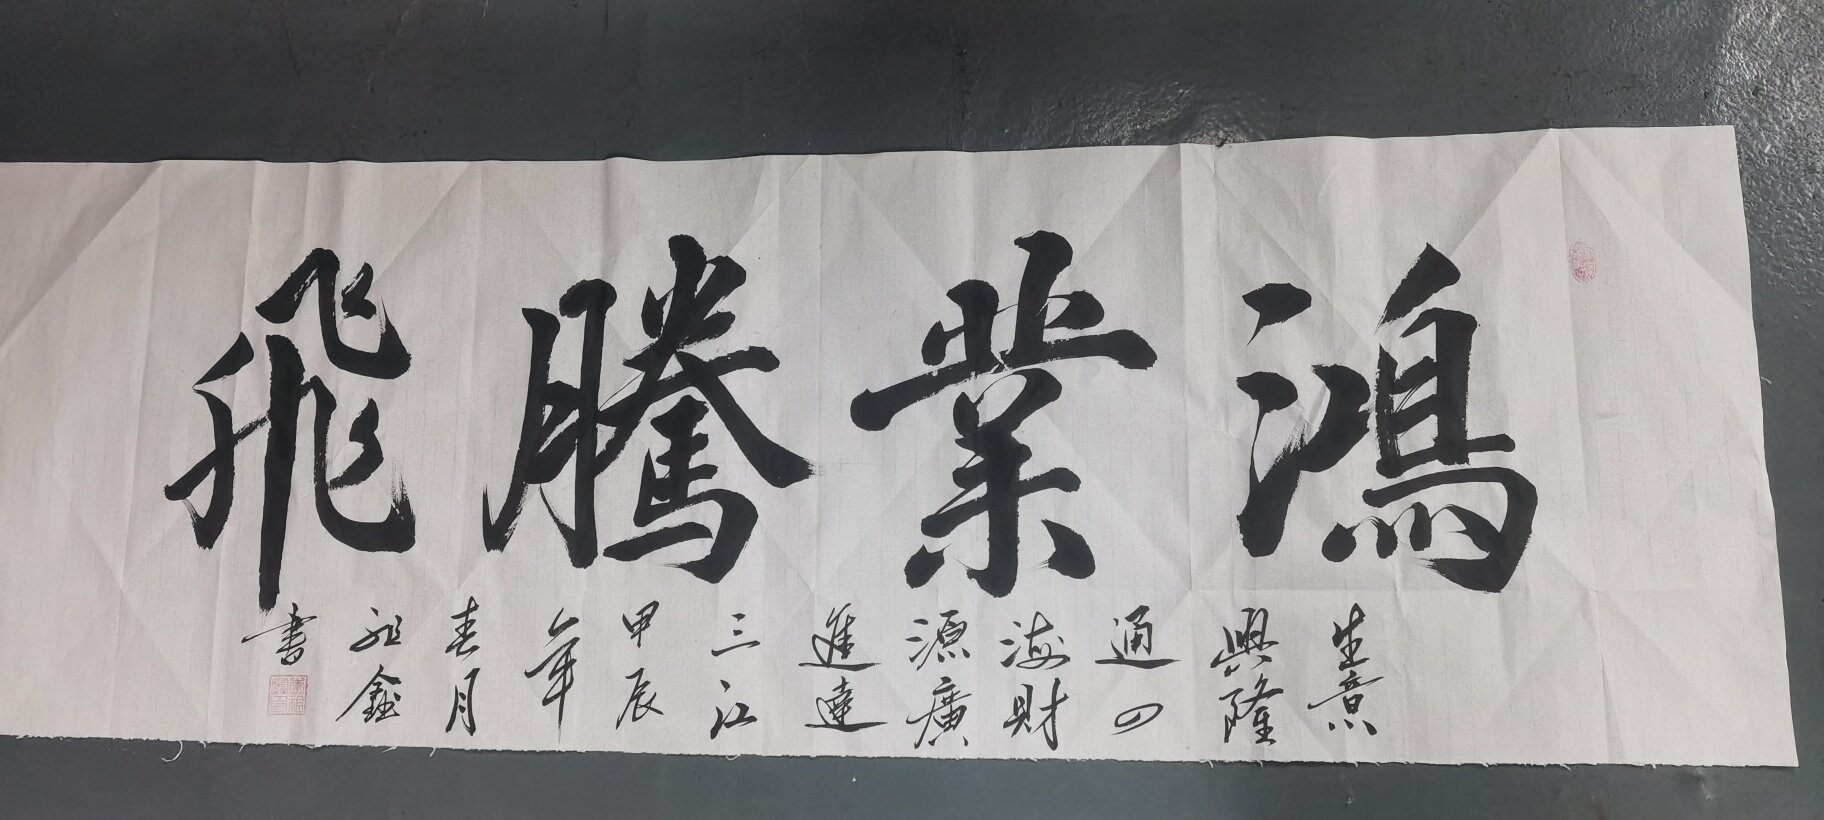 鴻業騰飛
生意
興隆
通四
海財
源廣
進達
三江
甲辰
年
春月
祖鑫
書